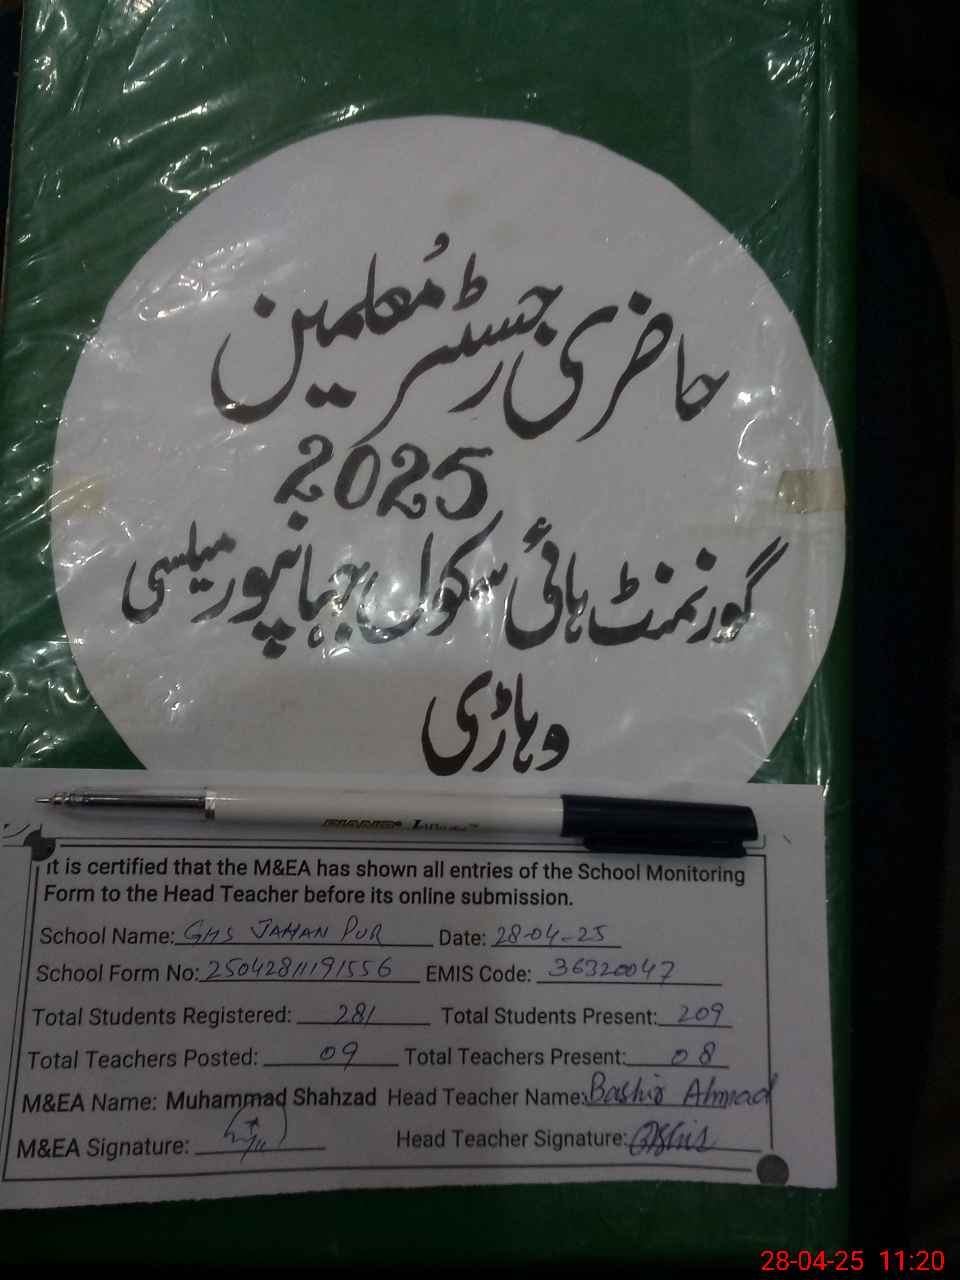 حاضری رجسٹر مُعلمین
2025
گورنمنٹ ہائی سکول جہانپور میلسی
وہاڑی
PIANO
It is certified that the M&EA has shown all entries of the School Monitoring
Form to the Head Teacher before its online submission.
School Name: GHS JAHAN PUR Date: 28-04-25
School Form No: 25042811191556 EMIS Code: 36320047
Total Students Registered: 281 Total Students Present: 209
Total Teachers Posted: 09 Total Teachers Present: 08
M&EA Name: Muhammad Shahzad Head Teacher Name: Bashir Ahmad
M&EA Signature: Head Teacher Signature:
28-04-25 11:20